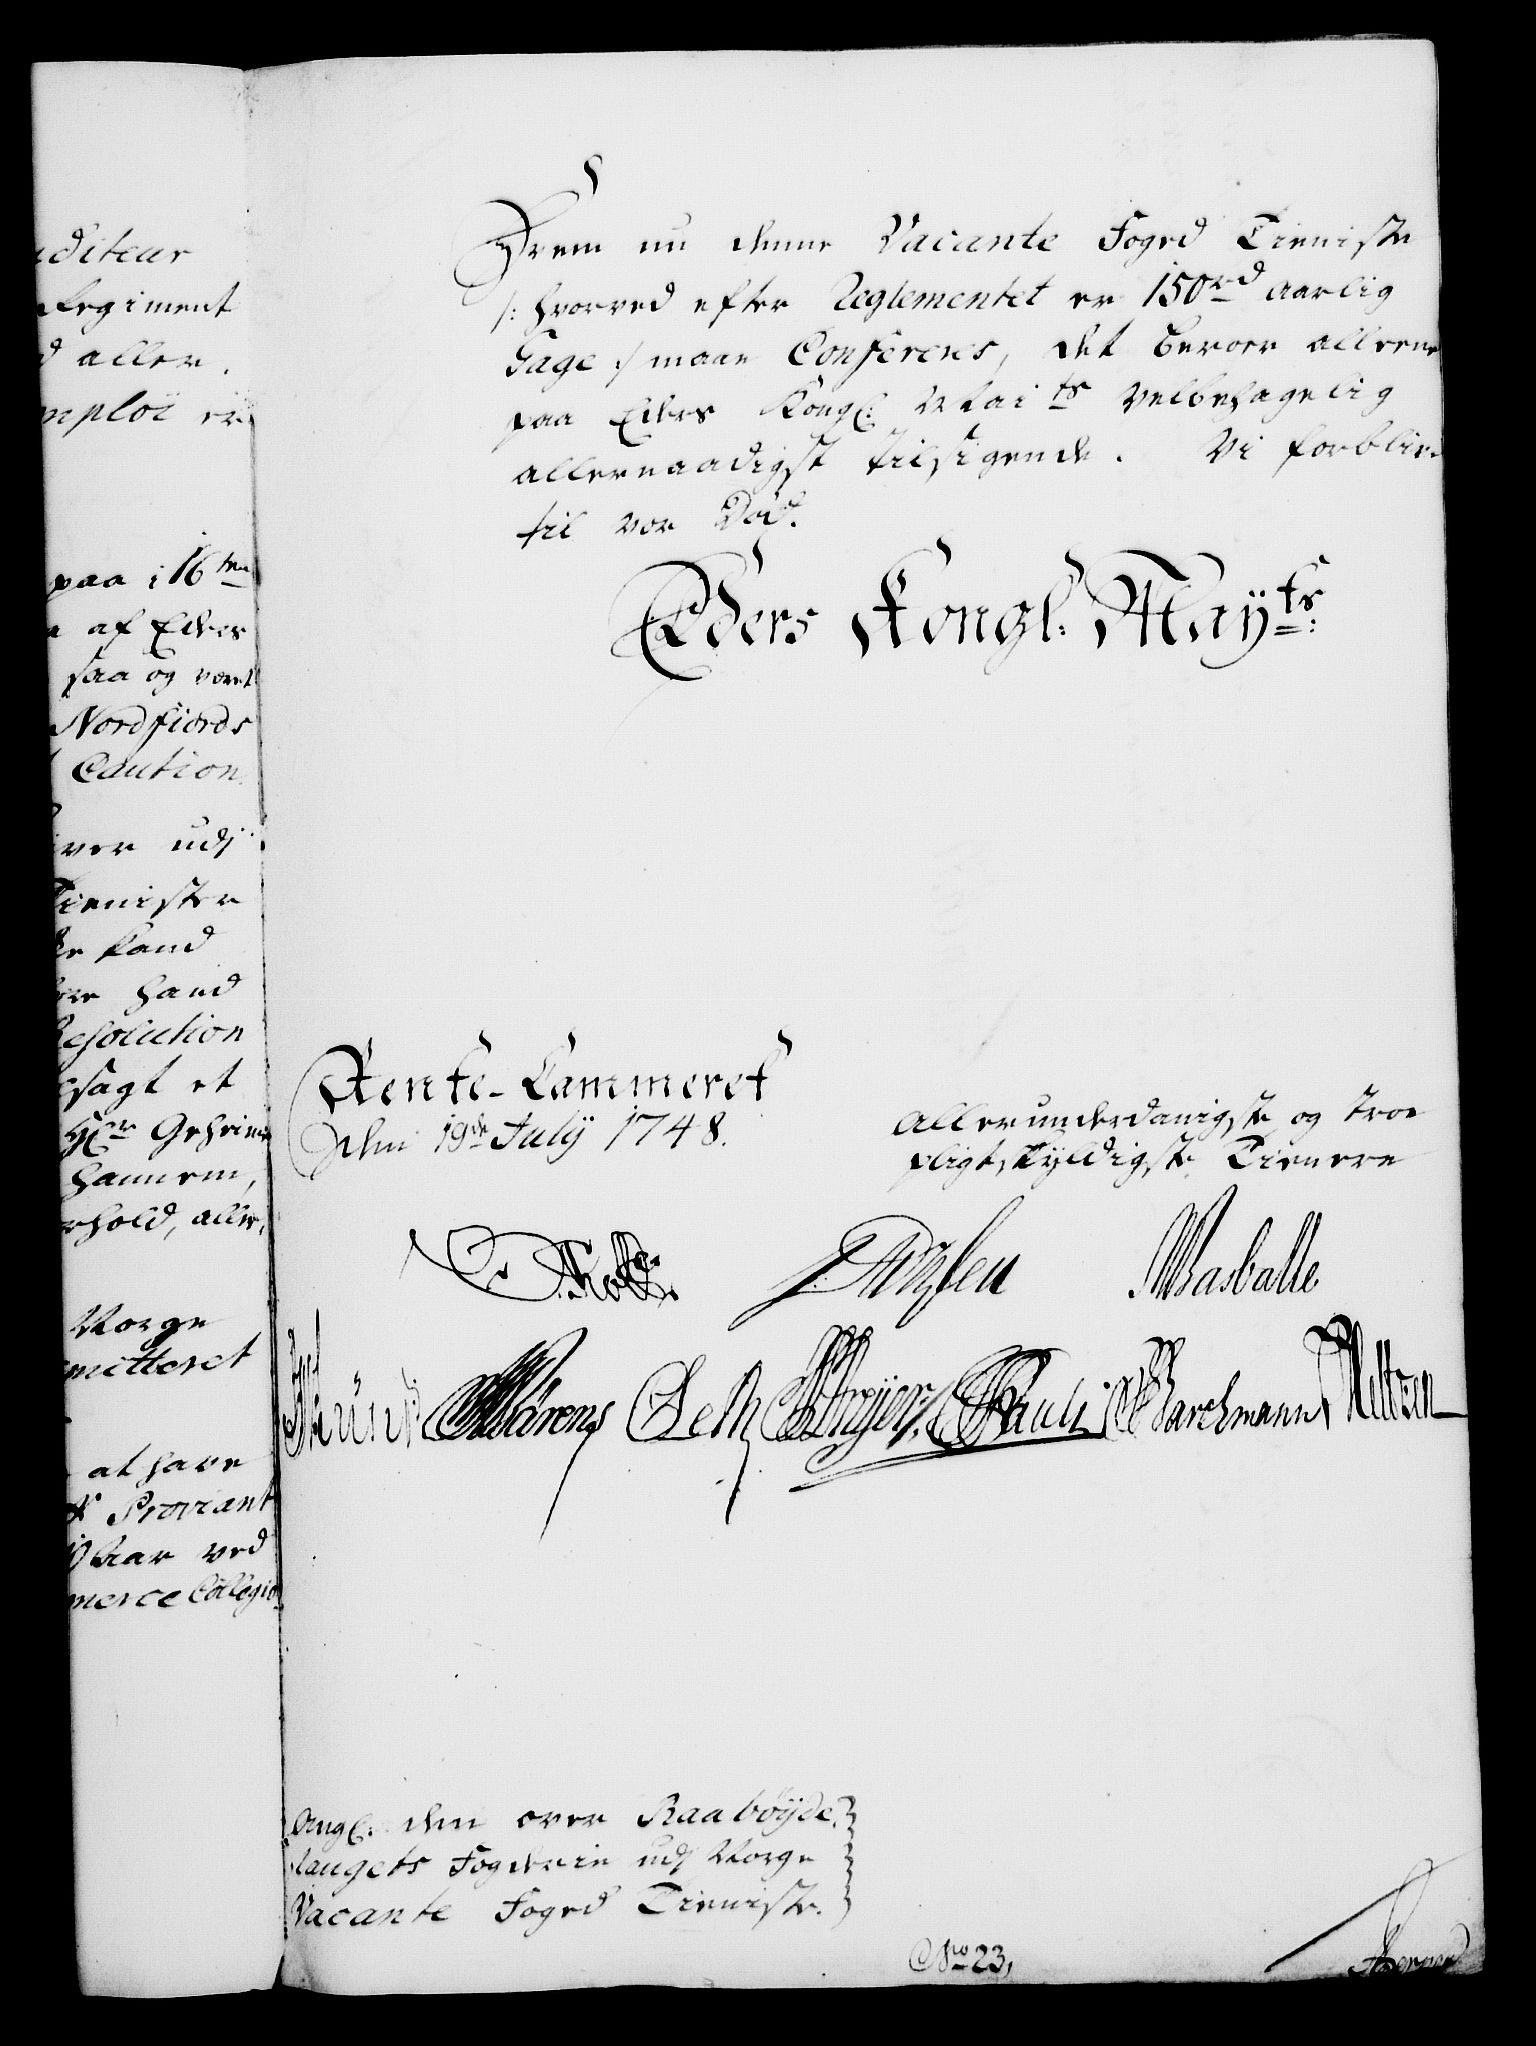 uditeur
Regiment
d aller,
mploi er
paa i 16ten
af Eders
saa og været
Nordfiords
Caution
over udj
Tienister
Kand
hand
Resolution
sagt et
Hr Geheime
hannem,
rhold, aller,
Norge
mitteret
at have
Proviant
Aar ved
merce Collegio
Hvem nu denne Vacante Foged Tieniste
/: hvorved efter Reglementet er 150 rd aarlig
Gage :/ maae Confereres, det beroer alleene
paa Eders Kongl: Maits velbehagelig
allernaadigst tilsigende. Vi forblive
til vor Død.
Eders Kongl: Mayts:
Rente-Cammeret
den 19de Julij 1748.
Allerunderdanigste og troe
pligtskyldigste Tienere
Holst.
Masballe
Seth
Pauli
Barchmann
Neltzen
Angl: den over Raabøijde-
laugets Fogderie udj Norge
Vacante Foged Tieniste.
No 23,